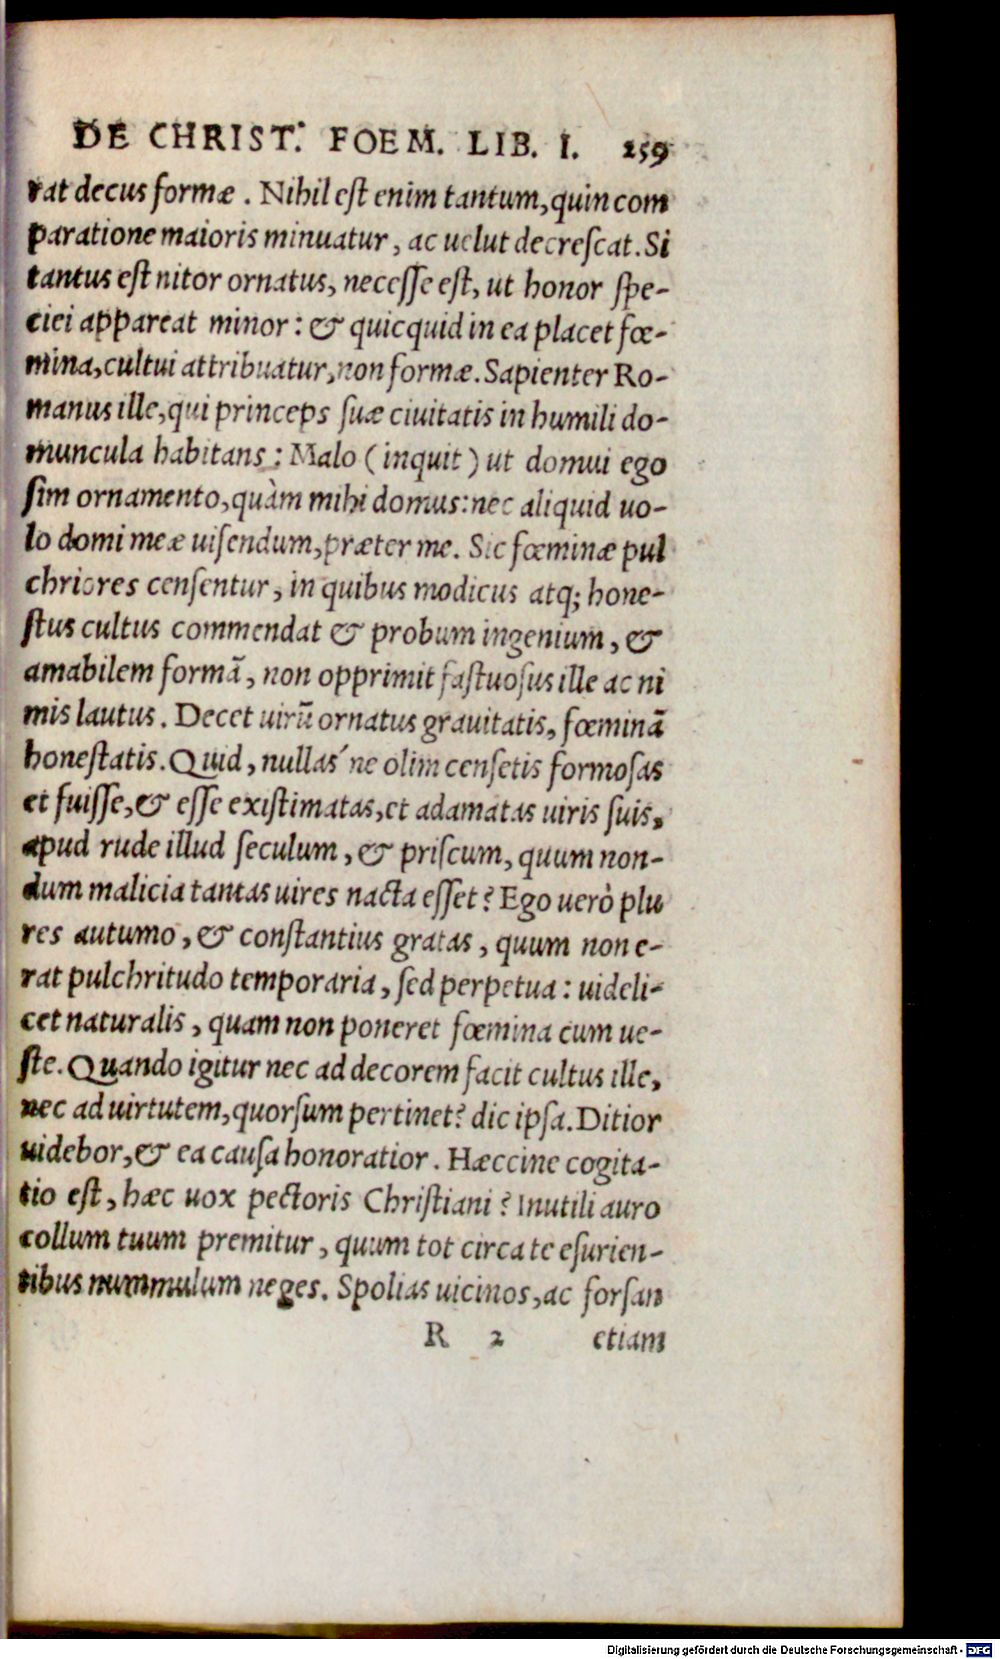 DE CHRIST. FOEM. LIB. I. 259
rat decus formæ . Nihil est enim tantum, quin com
paratione maioris minuatur, ac uelut decrescat. Si
tantus est nitor ornatus, necesse est, ut honor spe-
ciei appareat minor : & quicquid in ea placet fœ-
mina, cultui attribuatur, non formæ. Sapienter Ro-
manus ille, qui princeps suæ ciuitatis in humili do-
muncula habitans : Malo ( inquit ) ut domui ego
sim ornamento, quàm mihi domus: nec aliquid uo-
lo domi meæ uisendum, præter me. Sic fœminæ pul
chriores censentur, in quibus modicus atq; hone-
stus cultus commendat & probum ingenium, &
amabilem formā, non opprimit fastuosus ille ac ni
mis lautus. Decet uirū ornatus grauitatis, fœminā
honestatis. Quid, nullas´ne olim censetis formosas
et fuisse, & esse existimatas, et adamatas uiris suis,
apud rude illud seculum, & priscum, quum non-
dum malicia tantas uires nacta esset? Ego uerò plu
res autumo, & constantius gratas, quum non e-
rat pulchritudo temporaria, sed perpetua : uideli-
cet naturalis, quam non poneret fœmina cum ue-
ste. Quando igitur nec ad decorem facit cultus ille,
nec ad uirtutem, quorsum pertinet? dic ipsa. Ditior
uidebor, & ea causa honoratior. Hæccine cogita-
tio est, hæc uox pectoris Christiani ? Inutili auro
collum tuum premitur, quum tot circa te esurien-
tibus nummulum neges. Spolias uicinos, ac forsan
R 2 etiam
Digitalisierung gefördert durch die Deutsche Forschungsgemeinschaft - DFG